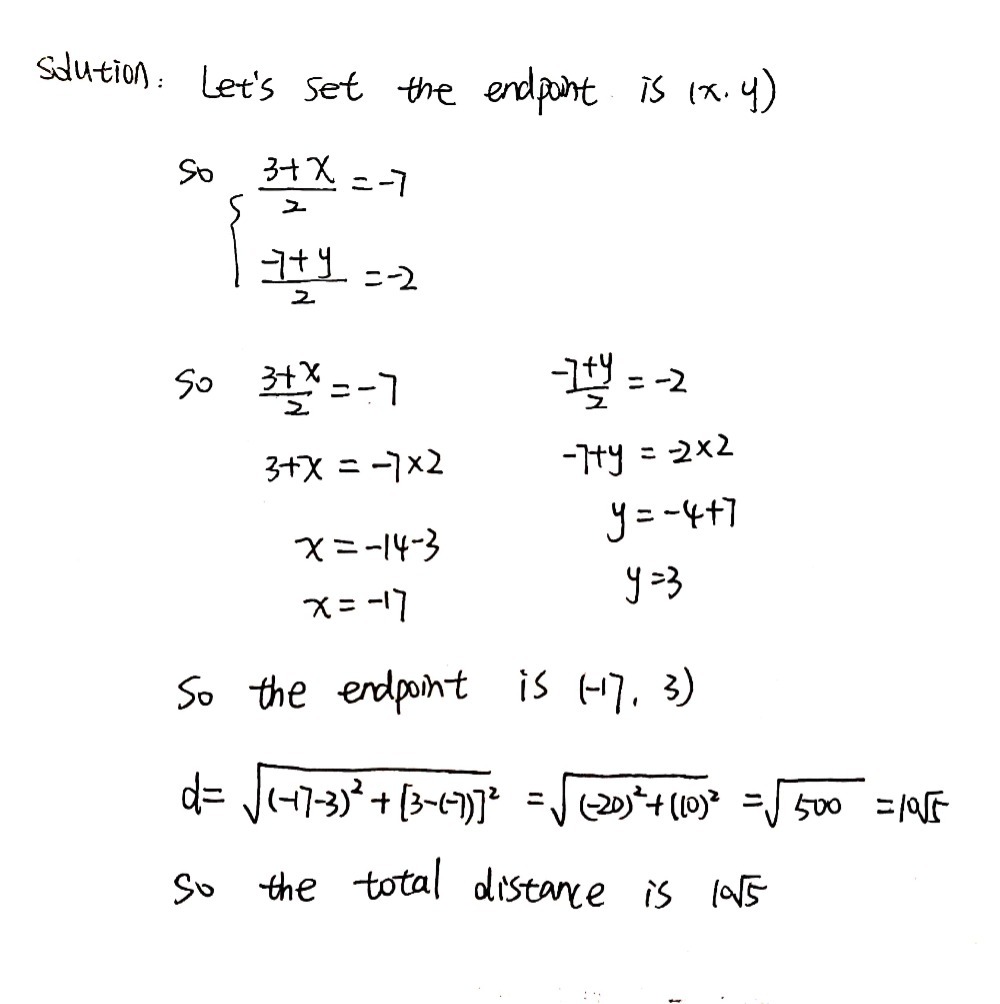 Solution: Let's set the endpoint is (x. y)
So { (3+x)/2 = -7
(-7+y)/2 = -2
So (3+x)/2 = -7    (-7+y)/2 = -2
3+x = -7×2    -7+y = -2×2
x = -14-3    y = -4+7
x = -17    y = 3
So the endpoint is (-17, 3)
d= √((-17-3)² + [3-(-7)]²) = √((-20)²+(10)²) = √500 = 10√5
So the total distance is 10√5